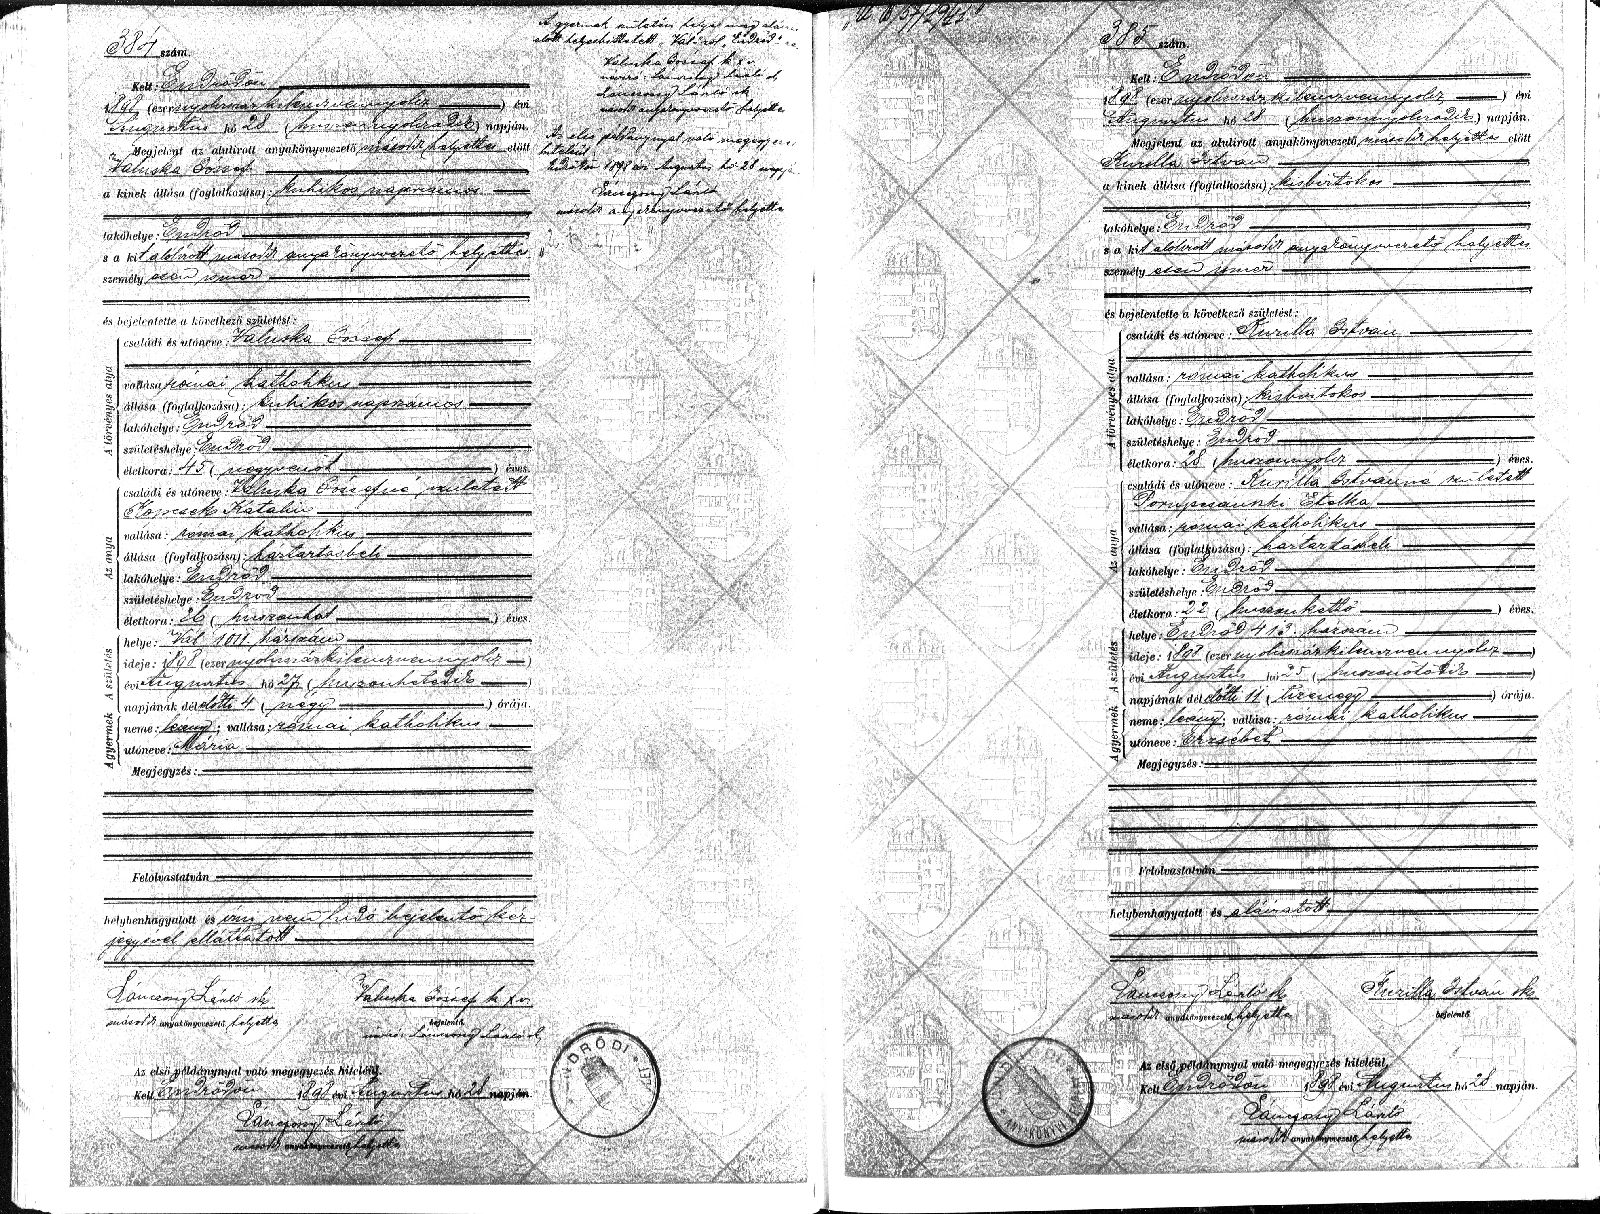 384 szám.
Kelt: Endrődön
1898 (ezernyolcszázkilenczvennyolcz) évi
Augusztus hó 28 (huszonnyolczadik) napján.
Megjelent az alulirott anyakönyvezető másodk helyettes előtt
Valuska József
a kinek állása (foglalkozása): kubikos napszámos
lakóhelye: Endrőd
s a kit alólirott másodk anyakönyvvezető helyettes
személyesen ismer
és bejelentette a következő születést:
A törvényes atya
családi és utóneve: Valuska József
vallása: római katholikus
állása (foglalkozása): kubikos napszámos
lakóhelye: Endrőd
születéshelye: Endrőd
életkora: 45 (negyvenöt) éves.
Az anya
családi és utóneve: Valuska Józsefné, született
Kopcsek Katalin
vallása: római katholikus
állása (foglalkozása): háztartásbeli
lakóhelye: Endrőd
születéshelye: Endrőd
életkora: 26 (huszonhat) éves.
A születés
helye: Vál 1011. házszám
ideje: 1898 (ezernyolcszázkilenczvennyolcz)
évi Augusztus hó 27 (huszonhetedik)
napjának délelőtti 4 (négy) órája.
A gyermek
neme: leány; vallása: római katholikus
utóneve: Mária
Megjegyzés:
Felolvastatván
helybenhagyatott és irni nem tudó bejelentő kéz-
jegyével elláttatott
Lánczony László sk Valuska József k x v.
másodk anyakönyvvezető helyettes bejelentő
Lánczony László sk
Az első példánynyal való megegyezés hiteléül,
Kelt Endrődön 1898 évi Augusztus hó 28 napján.
Lánczony László
másodk anyakönyvvezető helyettes
A gyermek születési helye meg aláirás
előtt helyesbittetett "Vál"-ról "Endrőd"
Valuska József k x v.
Lánczony László sk
Lánczony László sk
másodk anyakönyvvezető helyettes
Az első példánynyal való megegyezés
hiteléül
Endrődön 1898 évi Augusztus hó 28 napján
Lánczony László
másodk anyakönyvvezető helyettes
NDRŐDI
385 szám.
Kelt: Endrődön
1898 (ezernyolcszázkilenczvennyolcz) évi
Augusztus hó 28 (huszonnyolczadik) napján.
Megjelent az alulirott anyakönyvezető másodk helyettes előtt
Kurilla Istvan
a kinek állása (foglalkozása): kisbirtokos
lakóhelye: Endrőd
s a kit alólirott másodk anyakönyvvezető helyettes
személyesen ismer
és bejelentette a következő születést:
A törvényes atya
családi és utóneve: Kurilla Istvan
vallása: római katholikus
állása (foglalkozása): kisbirtokos
lakóhelye: Endrőd
születéshelye: Endrőd
életkora: 28 (huszonnyolcz) éves.
Az anya
családi és utóneve: Kurilla Istvánné született
Etelka
vallása: római katholikus
állása (foglalkozása): háztartásbeli
lakóhelye: Endrőd
születéshelye: Endrőd
életkora: 22 (huszonkettő) éves.
A születés
helye: Endrőd 413. házszám
ideje: 1898 (ezernyolcszázkilenczvennyolcz)
évi Augusztus hó 25 (huszonötödik)
napjának délelőtti 11 (tizenegy) órája.
A gyermek
neme: leány; vallása: római katholikus
utóneve: Erzsébet
Megjegyzés:
Felolvastatván
helybenhagyatott és aláiratott
Lánczony László sk Kurilla Istvan sk
másodk anyakönyvvezető helyettes bejelentő
Az első példánynyal való megegyezés hiteléül,
Kelt Endrődön 1898 évi Augusztus hó 28 napján.
Lánczony László
másodk anyakönyvvezető helyettes